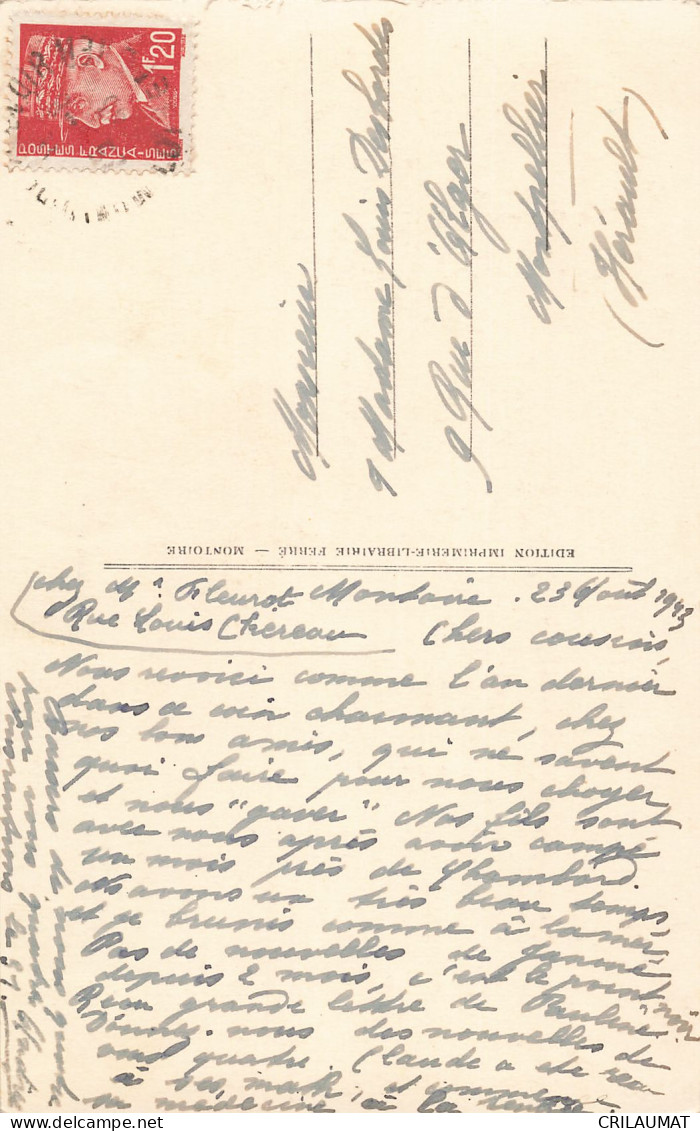 1F20
POSTES FRANÇAISES
Monsieur
& Madame Louis Desbordes
9 Rue d'Alger
Montpellier
(Hérault)
EDITION IMPRIMERIE-LIBRAIRIE FERRÉ — MONTOIRE
chez Mr Fleurot Montoire. 23 Août 1943
Rue Louis Chereau Chers cousins,
Nous revoici comme l'an dernier
dans ce coin charmant, chez
nos bons amis, qui ne savent
quoi faire pour nous choyer
et nous "gaver" Nos fils sont
avec nous après avoir campé
un mois près de Chambord
Ns avons un très beau temps
et je brunis comme à la mer.
Pas de nouvelles de Jeanne
depuis 2 mois, c'est le point noir
Reçu grande lettre de Pauline
Donnez-nous des nouvelles de
vous quatre. Claude a été reçu
à ses math, et commence
sa médecine à la rentrée
de nous quatre
pour vous quatre
CRILAUMAT